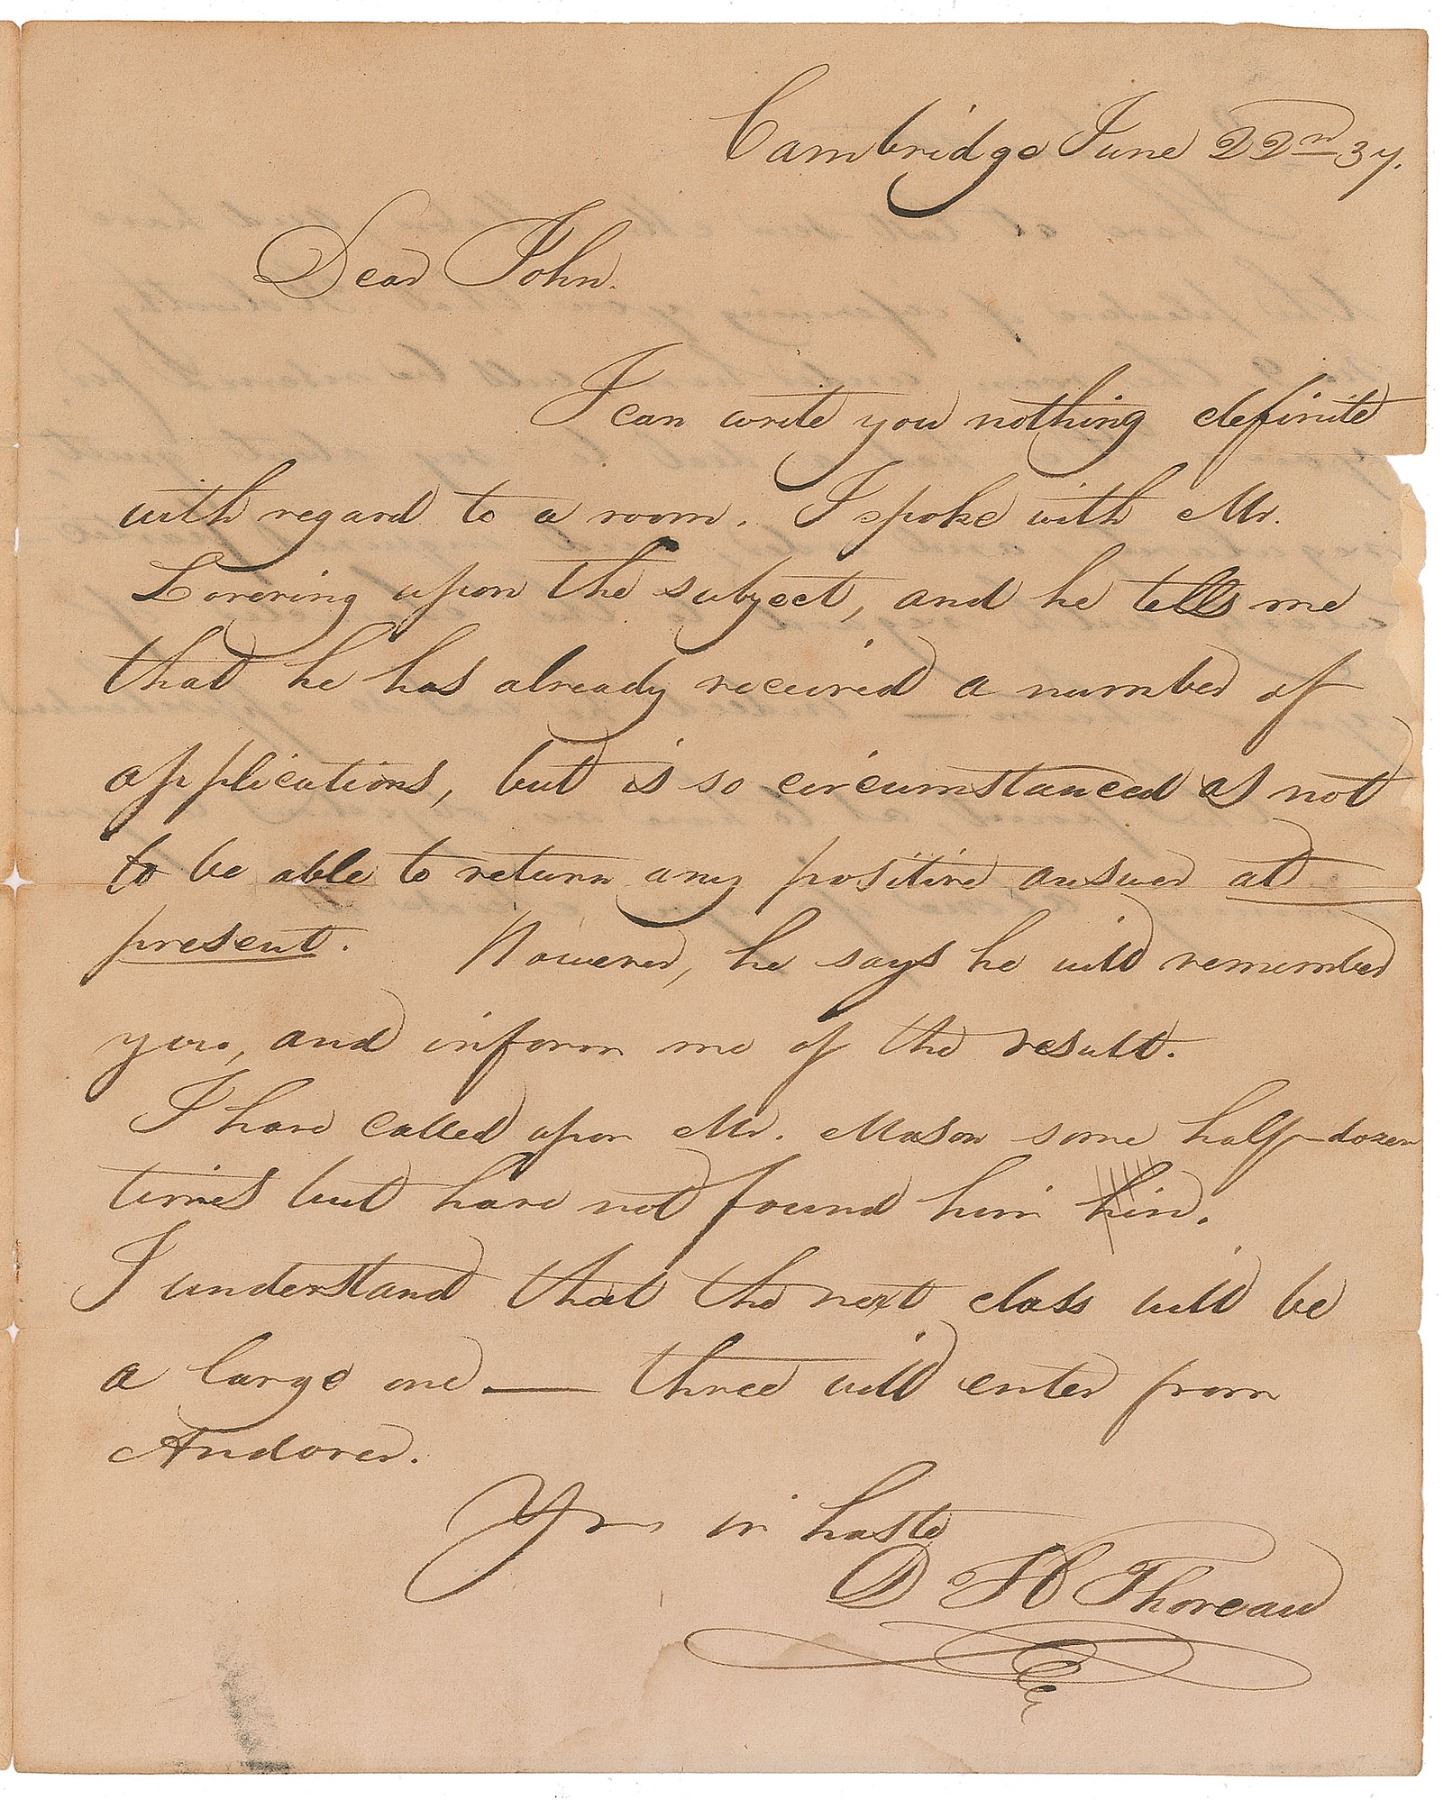 Cambridge June 22nd 37.
Dear John.
I can write you nothing definite
with regard to a room. I spoke with Mr.
Lovering upon the subject, and he tells me
that he has already received a number of
applications, but is so circumstanced as not
to be able to return any positive answer at
present. However, he says he will remember
you, and inform me of the result.
I have called upon Mr. Mason some half-dozen
times but have not found him him.
I understand that the next class will be
a large one — three will enter from
Andover.
Yrs in haste
D H Thoreau